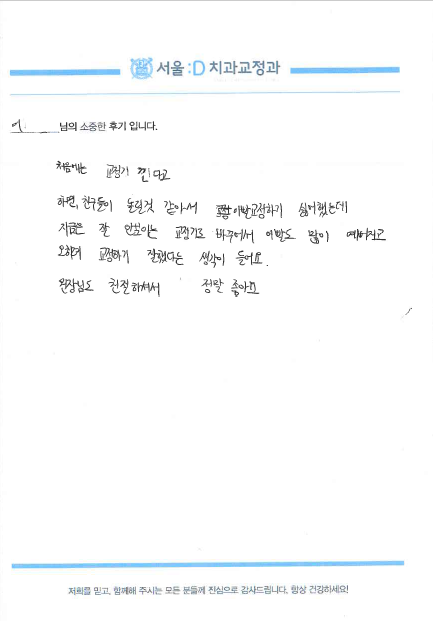 서울:D 치과교정과
여 님의 소중한 후기 입니다.
처음에는 교정기 낀다고
하면, 친구들이 놀릴것 같아서 이빨교정하기 싫어했는데
지금은 잘 안보이는 교정기로 바꾸어서 이빨도 많이 예뻐지고
오히려 교정하기 잘했다는 생각이 들어요.
원장님도 친절하셔서 정말 좋아요
저희를 믿고, 함께해 주시는 모든 분들께 진심으로 감사드립니다. 항상 건강하세요!